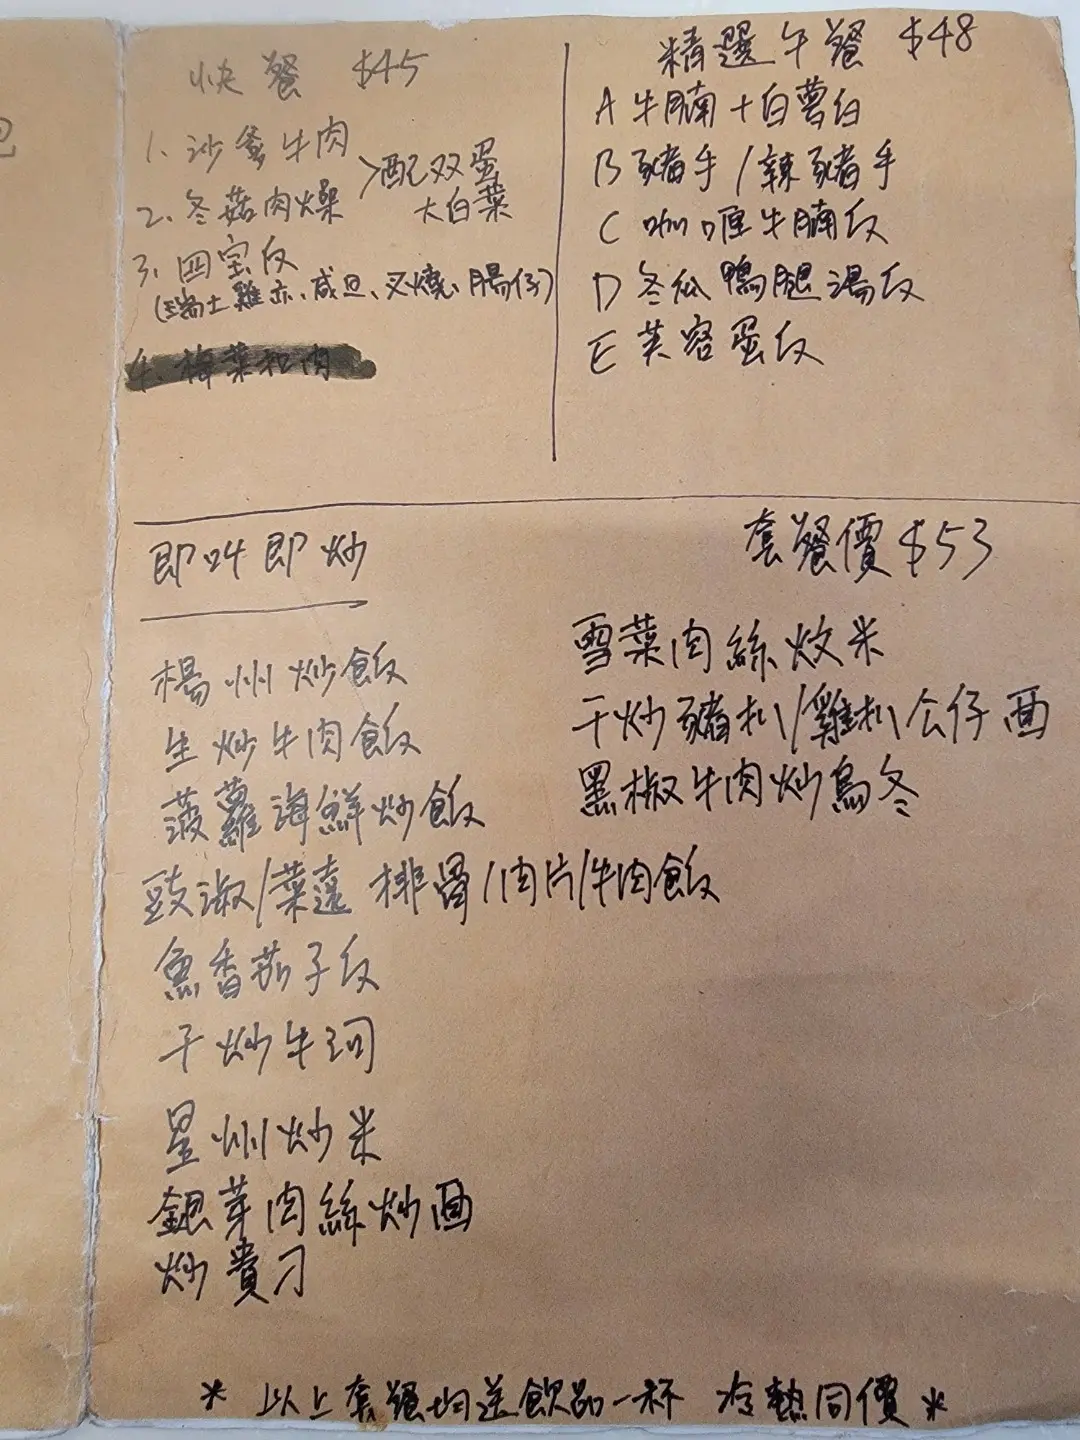 快餐 $45
1. 沙爹牛肉
2. 冬菇肉燥
>配双蛋
大白菜
3. 四宝反
(瑞士雞亦、咸旦、叉燒、腸仔)
4. 梅菜扣肉
精選午餐 $48
A 牛腩+白蘿白
B 豬手/辣豬手
C 咖喱牛腩反
D 冬瓜鴨腿湯反
E 芙容蛋反
即叫即炒
套餐價 $53
楊州炒飯
生炒牛肉飯
菠蘿海鮮炒飯
豉淑/菜遠 排骨/肉片/牛肉飯
魚香茄子反
干炒牛河
星州炒米
銀芽肉絲炒面
炒貴刁
雪菜肉絲炆米
干炒豬扒/雞扒公仔面
黑椒牛肉炒烏冬
* 以上套餐均送飲品一杯 冷熱同價 *